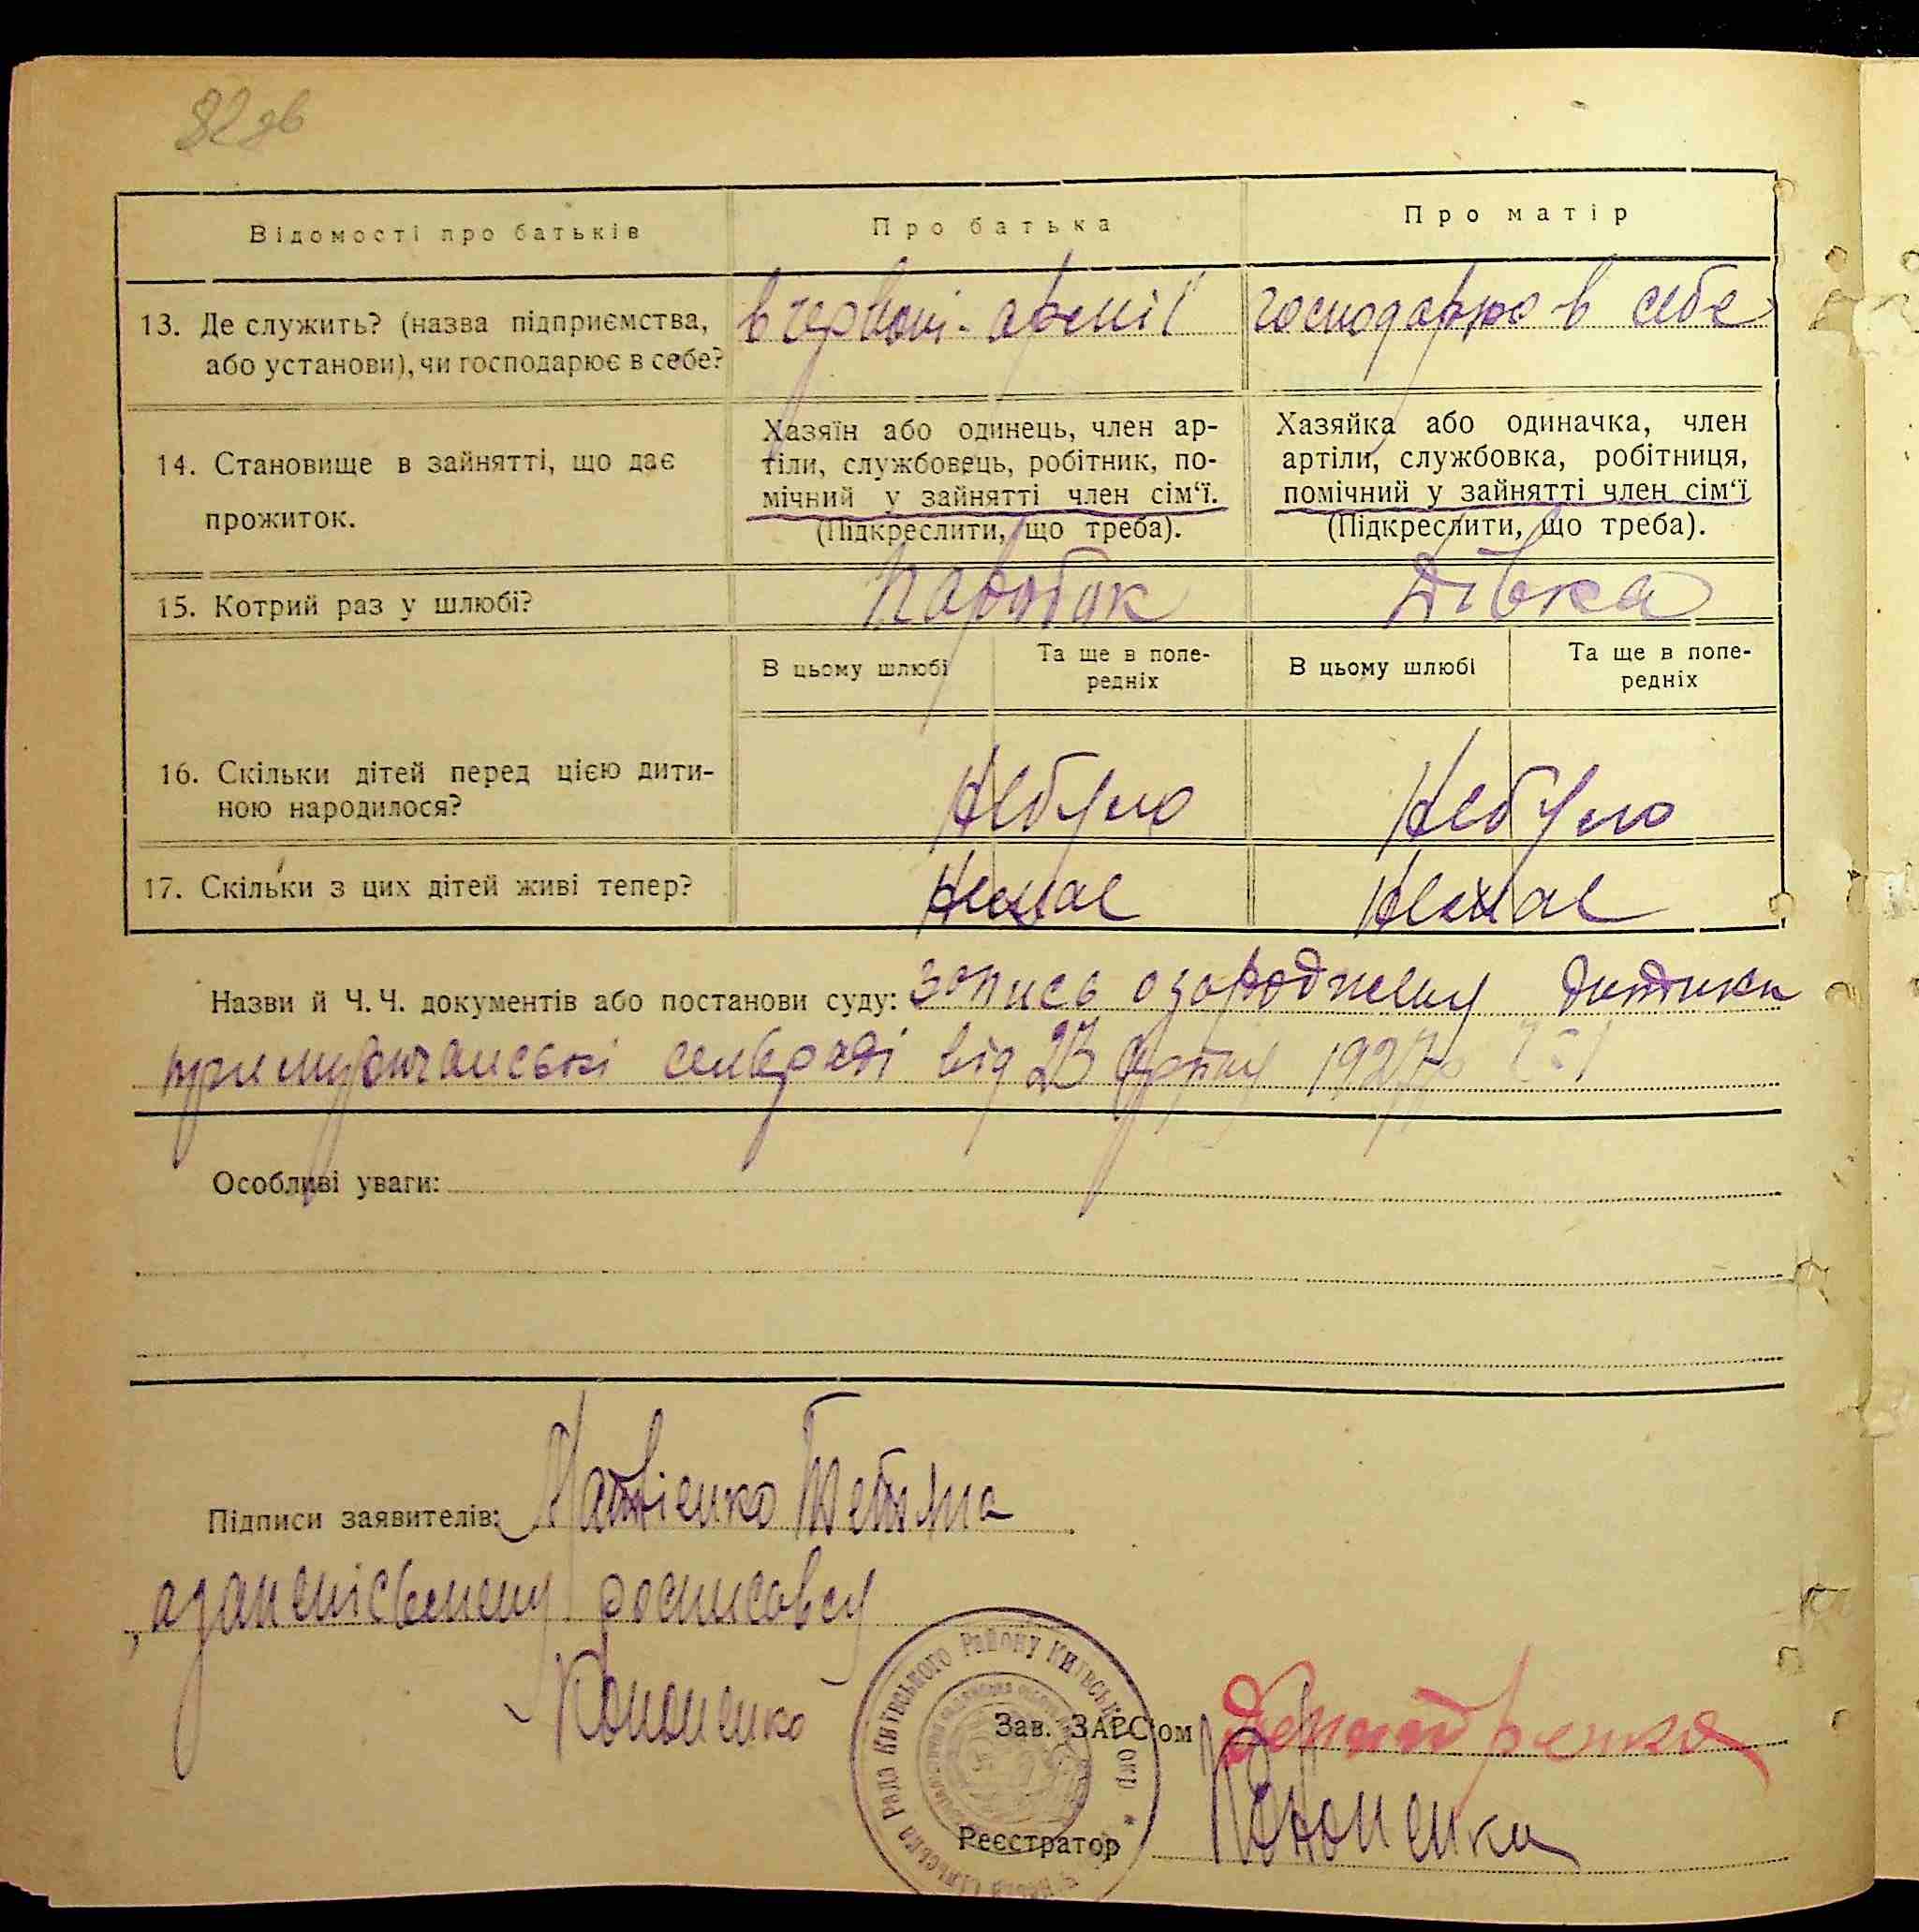 82 зв
Відомості про батьків
Про батька
Про матір
13. Де служить? (назва підприємства,
або установи), чи господарює в себе?
в червоні-армії
господарює в себе
14. Становище в зайнятті, що дає
прожиток.
Хазяїн або одинець, член ар-
тіли, службовець, робітник, по-
мічний у зайнятті член сім‘ї.
(Підкреслити, що треба).
Хазяйка або одиначка, член
артіли, службовка, робітниця,
помічний у зайнятті член сім‘ї
(Підкреслити, що треба).
15. Котрий раз у шлюбі?
Паробок
Дівка
В цьому шлюбі
Та ще в попе-
редніх
В цьому шлюбі
Та ще в попе-
редніх
16. Скільки дітей перед цією дити-
ною народилося?
Небуло
Небуло
17. Скільки з цих дітей живі тепер?
Немає
Немає
Назви й Ч. Ч. документів або постанови суду: запись дитини
сельраді від 23 1927
Особливі уваги:
Підписи заявителів: Матвієнко Тетяна
Кононенко
Рада Київського Району Київськ. окр. *
Зав. ЗАГС‘ом Дмитренко
Реєстратор Кононенко